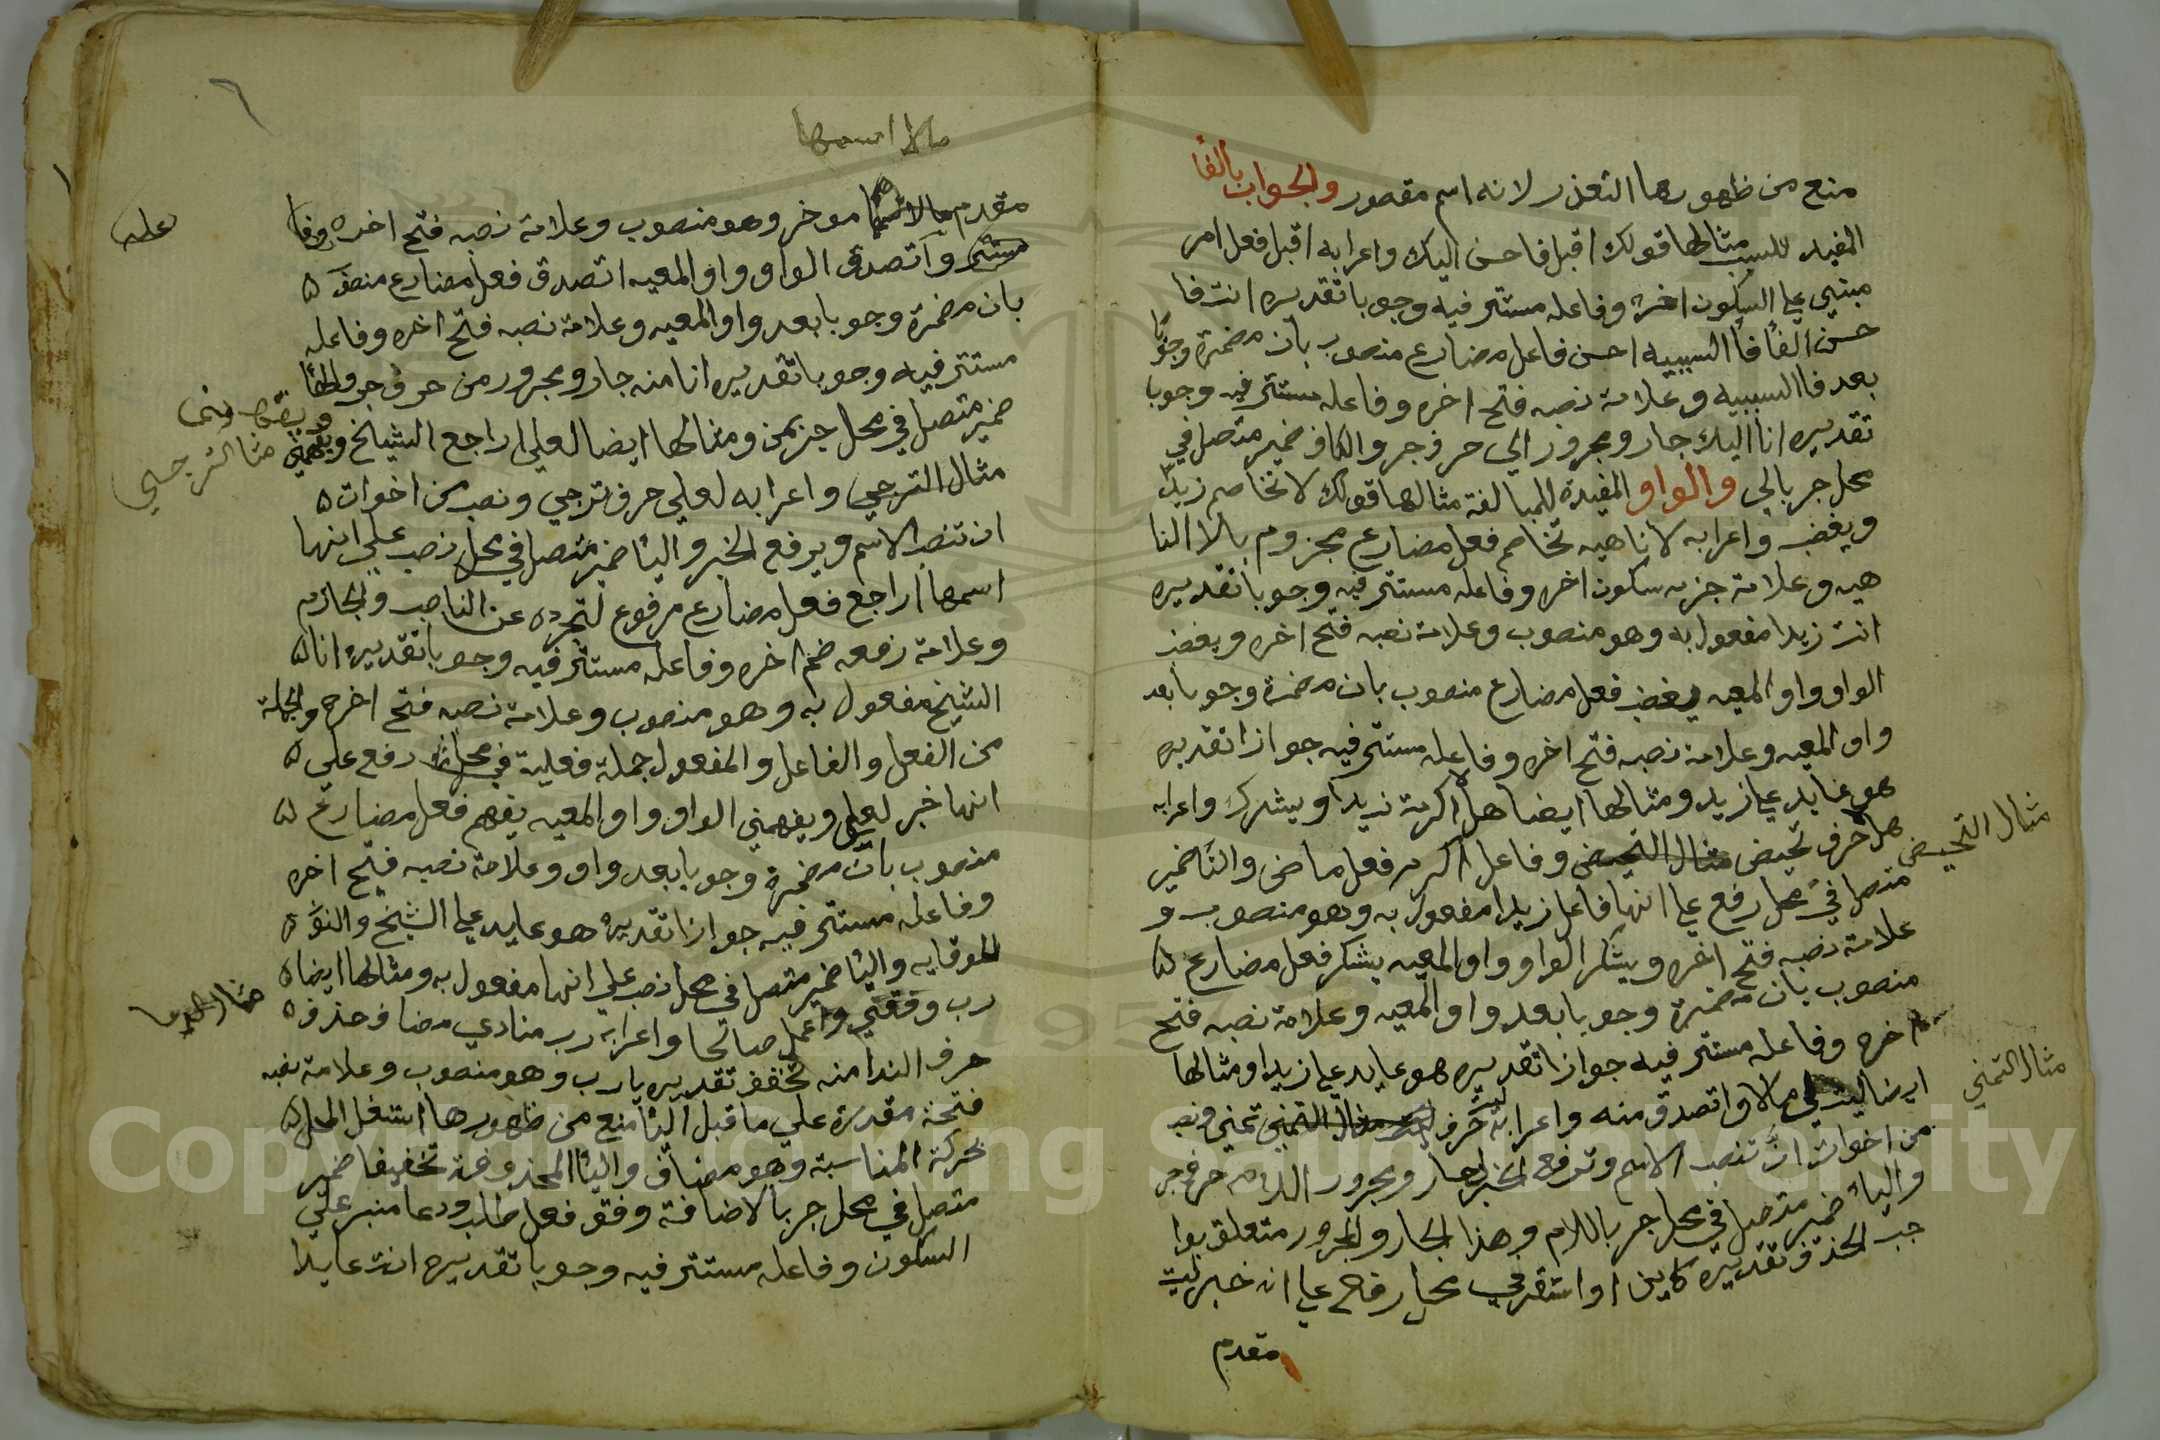 منع من ظهورها التعذر لانه اسم مقصور والجواب بالفا
المفيد للسبب مثالها قولك اقبل فاحسن اليك واعرابه اقبل فعل امر
مبني علي السكون اخره وفاعله مستتر فيه وجوبا تقديره انت فا
حسن الفا فا السببيه احسن فاعل مضارع منصوب بان مضمرة وجوبا
بعد فا السببيه وعلامة نصبه فتح اخره وفاعله مستتر فيه وجوبا
تقديره انا اليك جار ومجرور الي حرف جر والكاف ضمير متصل في
محل جر بالي والواو المفيدة للمبالغة مثالها قولك لا تخاصم زيدا
ويغضب واعرابه لا ناهيه تخاصم فعل مضارع مجزوم بالا النا
هيه وعلامة جزمه سكون اخره وفاعله مستتر فيه وجوبا تقديره
انت زيدا مفعول به وهو منصوب وعلامة نصبه فتح اخره ويغضب
الواو واو المعيه يغضب فعل مضارع منصوب بان مضمرة وجوبا بعد
واو المعيه وعلامة نصبه فتح اخره وفاعله مستتر فيه جوازا تقديره
هو عايد علي زيد ومثالها ايضا هلا اكرمة زيدا ويشكرك واعرابه
هلا حرف تحيض مثال التحيض وفاعل اكرم فعل ماضى والتا ضمير
مثال التحيض
متصل في محل رفع علي انها فاعل زيدا مفعول به وهو منصوب و
علامة نصبه فتح اخره ويشكر الواو واو المعيه يشكر فعل مضارع
منصوب بان مضمرة وجوبا بعد واو المعيه وعلامة نصبه فتح
اخره وفاعله مستتر فيه جوازا تقديره هو عايد علي زيدا ومثالها
ايضا ليت لي مالا واتصدق منه واعرابه ليت حرف مثال التمني تمني ونصب
مثال التمني
من اخوات ان تنصب الاسم وترفع الخبر لي جار ومجرور اللام حرف جر
واليا ضمير متصل في محل جر باللام وهذا الجار والمجرور متعلق بوا
جب الحذف تقديره كاين او استقر في محل رفع علي انه خبر ليت
مقدم
مالا اسمها
مقدم مالا اسمها موخر وهو منصوب وعلامة نصبه فتح اخره
واتصدق الواو واو المعيه اتصدق فعل مضارع منصوب
بان مضمرة وجوبا بعد واو المعيه وعلامة نصبه فتح اخره وفاعله
مستتر فيه وجوبا تقديره انا منه جار ومجرور من حرف جر والها
ضمير متصل في محل جر بمن ومثالها ايضا لعلي اراجع الشيخ ويفهمني
مثال الترجي
مثال الترجي واعرابه لعلي حرف ترجي ونصب من اخوات
ان تنصب الاسم ويرفع الخبر واليا ضمير متصل في محل نصب علي انها
اسمها اراجع فعل مضارع مرفوع لتجرده عن الناصب والجازم
وعلامة رفعه ضم اخره وفاعله مستتر فيه وجوبا تقديره انا
الشيخ مفعول به وهو منصوب وعلامة نصبه فتح اخره والجملة
من الفعل والفاعل والمفعول جملة فعلية في محل رفع علي
انها خبر لعلي ويفهمني الواو واو المعيه يفهم فعل مضارع
منصوب بان مضمرة وجوبا بعد واو وعلامة نصبه فتح اخره
وفاعله مستتر فيه جوازا تقديره هو عايد علي الشيخ والنون
للوقايه واليا ضمير متصل في محل نصب علي انها مفعول به ومثالها ايضا
مثال الدعا
رب وفقني واعمل صالحا واعرابه رب منادي مضاف حذف
حرف الندا منه تخفف تقديره يارب وهو منصوب وعلامة نصبه
فتحة مقدرة علي ما قبل اليا منع من ظهورها اشتغل المحل
بحركة المناسبة وهو مضاف واليا المحذوفة تخفيفا ضمير
متصل في محل جر بالاضافة وفق فعل طلب ودعا مبني علي
السكون وفاعله مستتر فيه وجوبا تقديره انت عايدا
Copyright © King Saud University